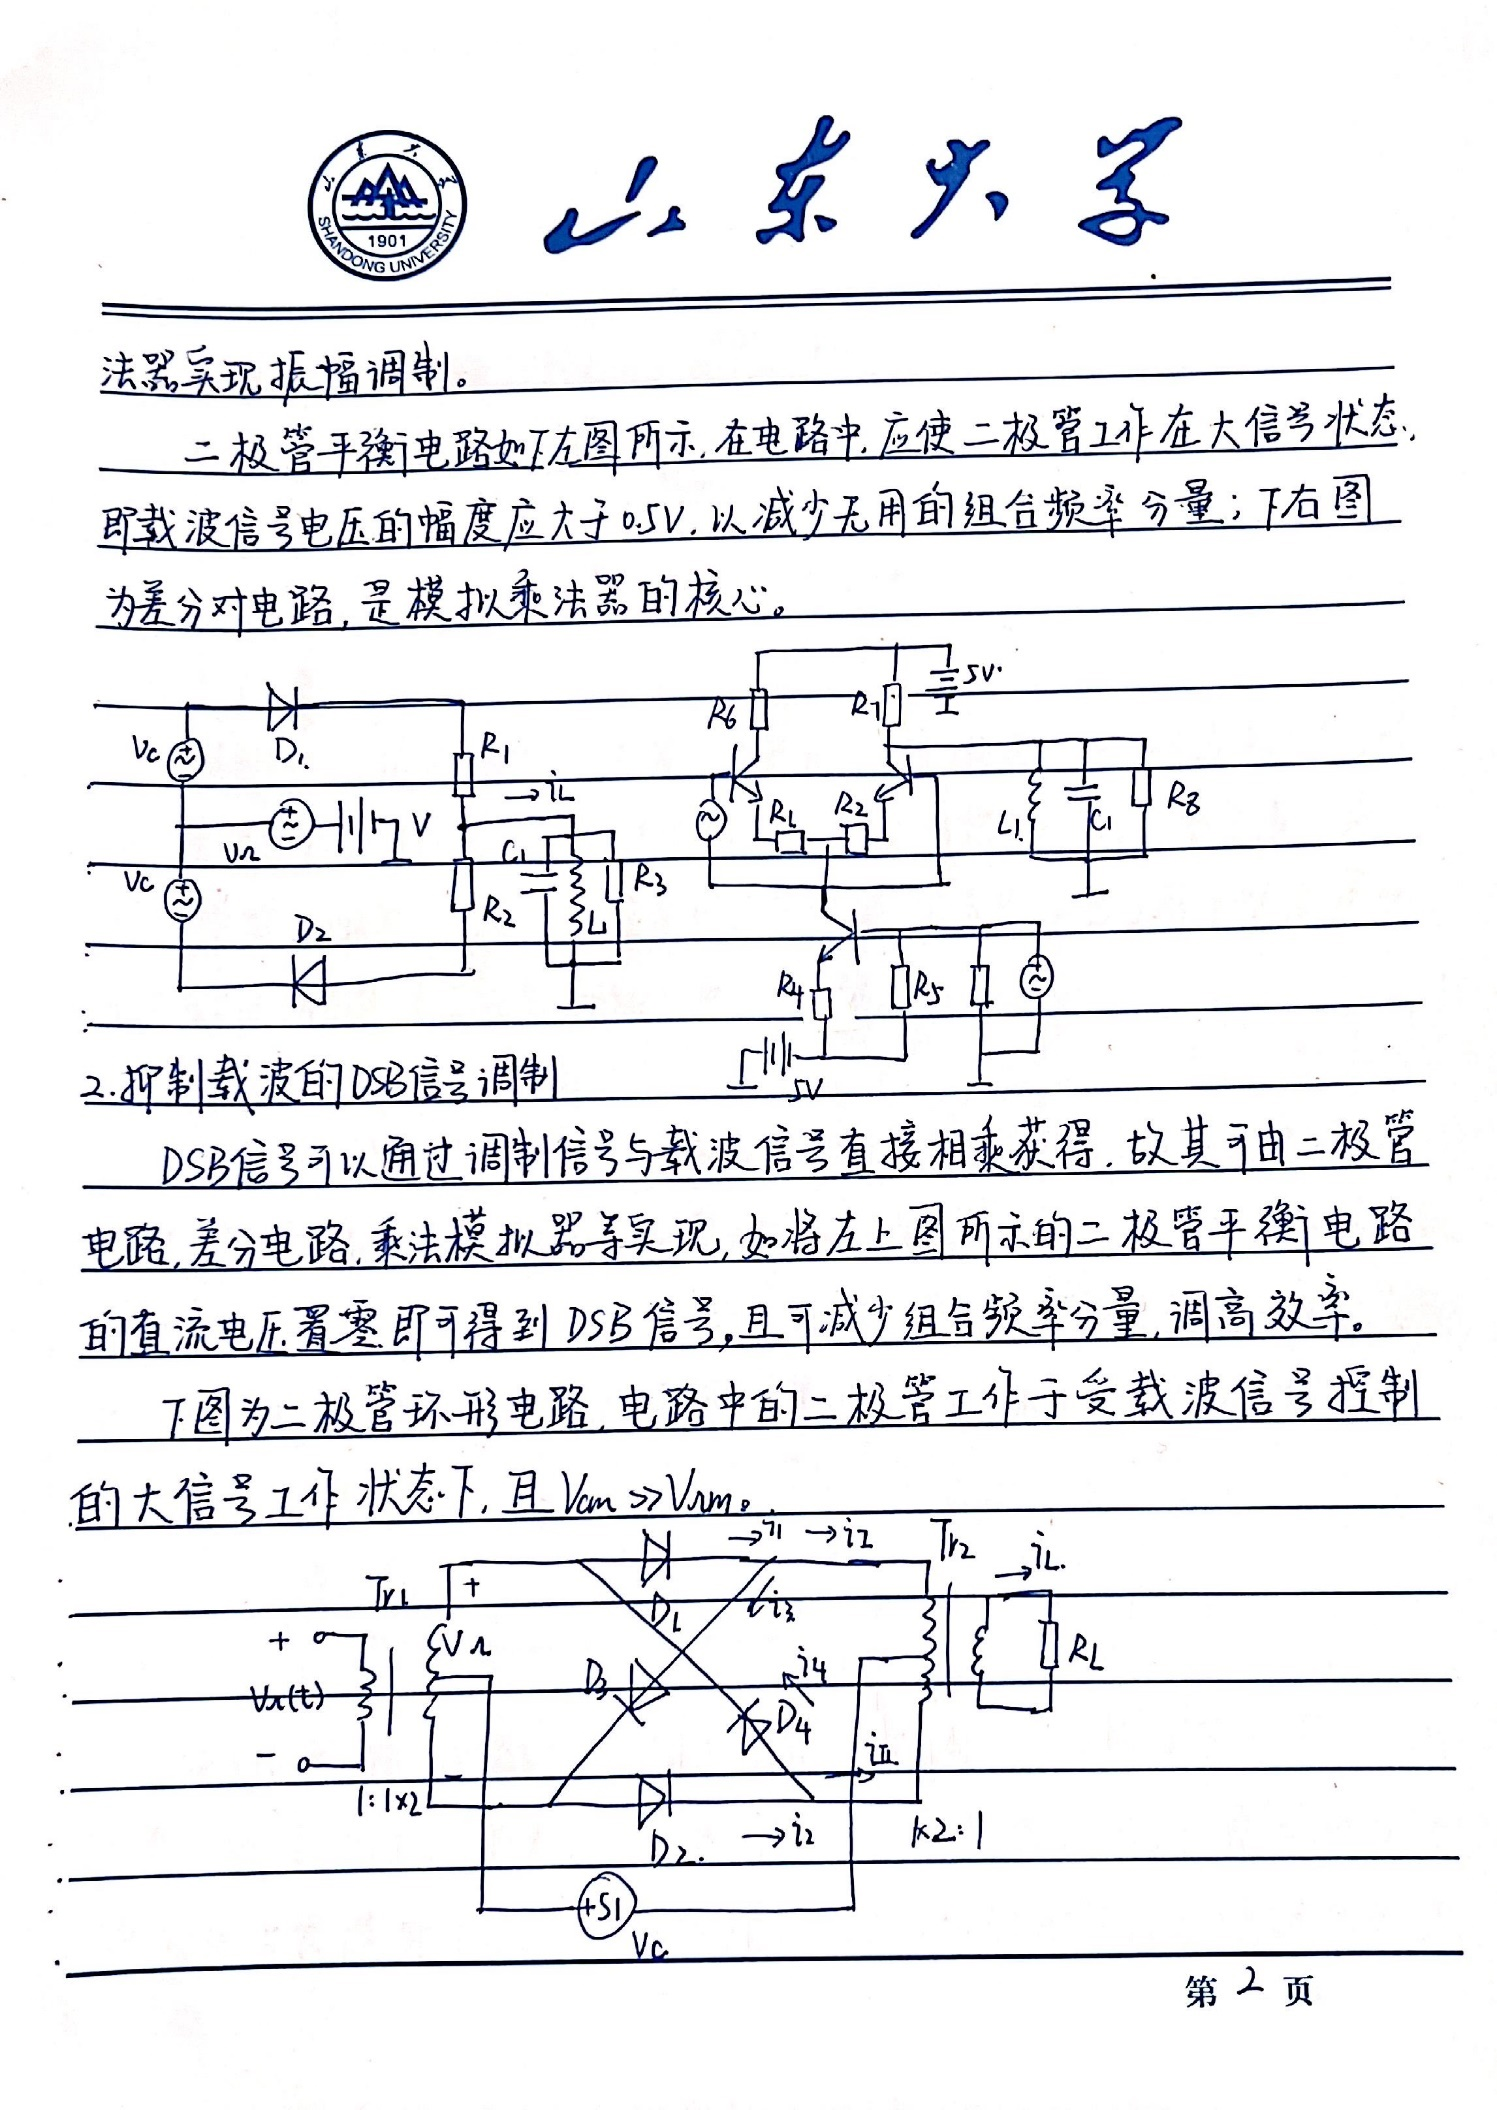 山东大学
1901
SHANDONG UNIVERSITY
法器实现振幅调制。
二极管平衡电路如下左图所示,在电路中,应使二极管工作在大信号状态,
即载波信号电压的幅度应大于0.5V,以减少无用的组合频率分量;下右图
为差分对电路,是模拟乘法器的核心。
Vc D1 R1 →iL
VΩ V C1 L R3
Vc D2 R2
R6 R7 5V
R1 R2 L1 C1 R8
R4 R5
5V
2.抑制载波的DSB信号调制
DSB信号可以通过调制信号与载波信号直接相乘获得,故其可由二极管
电路,差分电路,乘法模拟器等实现,如将左上图所示的二极管平衡电路
的直流电压置零即可得到DSB信号,且可减少组合频率分量,调高效率。
下图为二极管环形电路,电路中的二极管工作于受载波信号控制
的大信号工作状态下,且Vcm>>VΩm。
→i1 →iI Tr2 →iL
Tr1 + D1 i3
+ VΩ D3 i4 RL
VΩ(t) D4
- - iII
1:1x2 D2 →i2 1x2:1
Vc
第2页